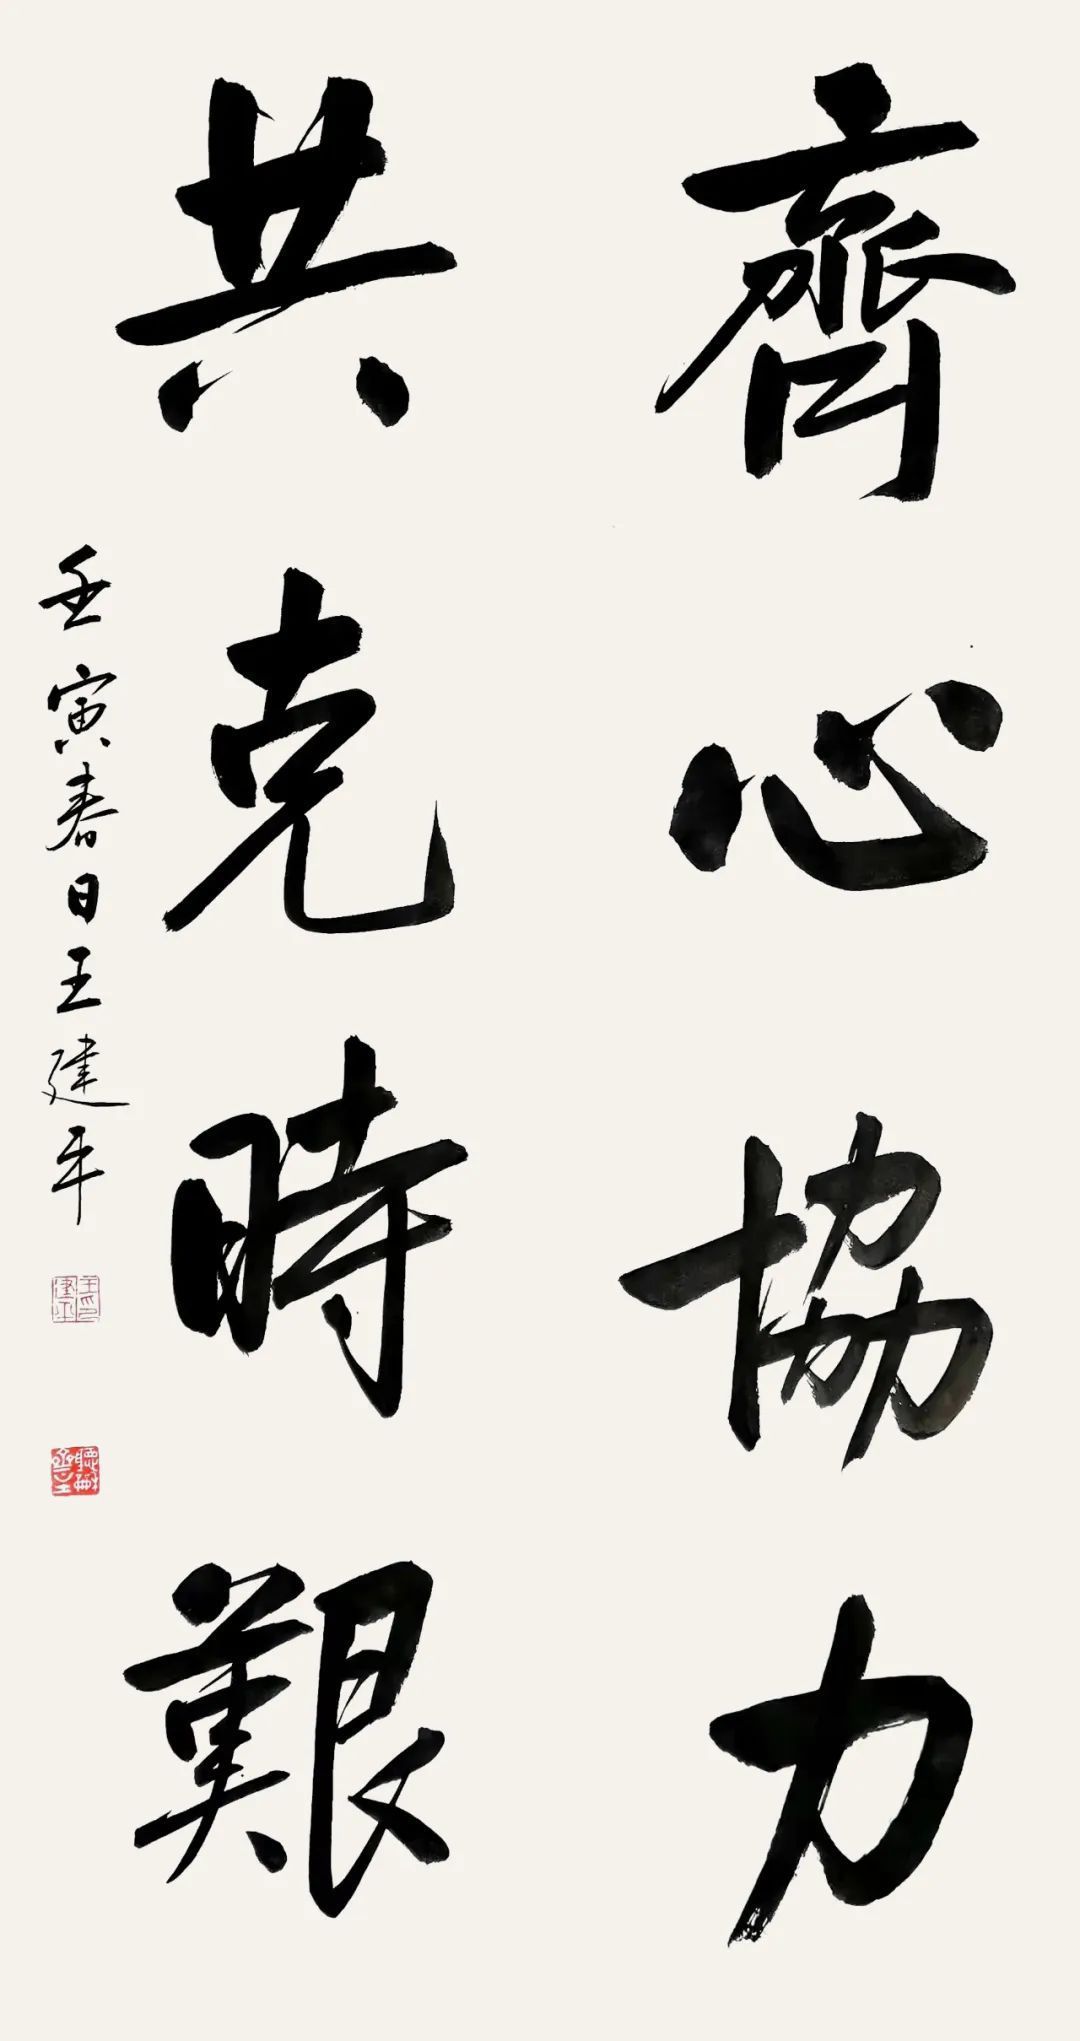 齊心協力
共克時艱
壬寅春日王建平